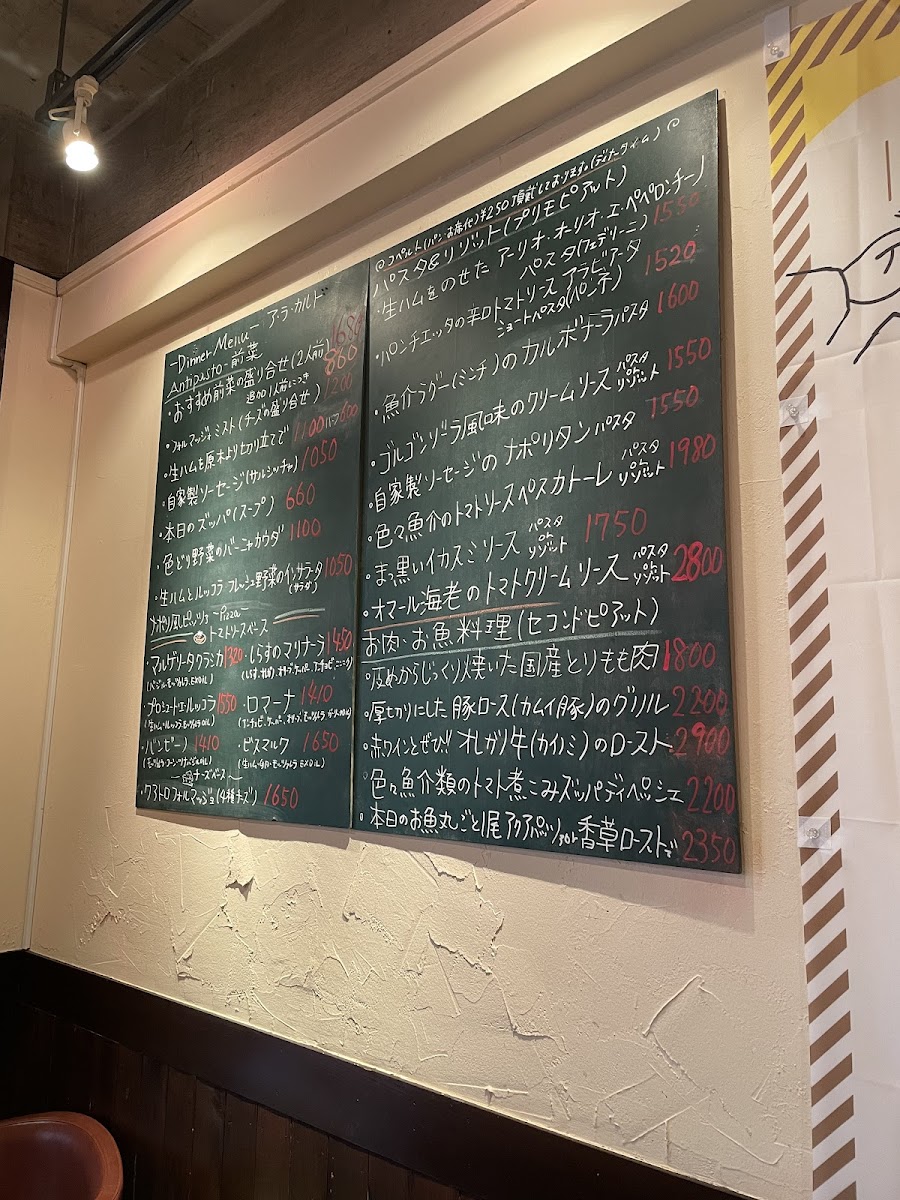 -Dinner Menu- ア・ラ・カルト
Antipasto-前菜
・おすすめ前菜の盛り合せ(2人前) 1680
追加1人前につき 860
・フォルマッジォミスト(チーズの盛り合せ) 1200
・生ハムを原木より切り立てで 1100 ハーフ600
・自家製ソーセージ(サルシッチャ) 1050
・本日のズッパ(スープ) 660
・色どり野菜のバーニャカウダ 1100
・生ハムとルッコラ・フレッシュ野菜のインサラータ 1050
(サラダ)
ナポリ風ピッツァ Pizza
トマトソースベース
・マルゲリータクラシカ 1320 ・しらすのマリナーラ 1450
・プロシュート・エ・ルッコラ 1550 ・ロマーナ 1410
・バンビーノ 1410 ・ビスマルク 1650
チーズベース
・クアトロフォルマッジョ(4種チーズ) 1650
◎コペルト(パン・お席代)¥250頂戴しております。(ディナータイム)◎
パスタ&リゾット(プリモピアット)
・生ハムをのせた アーリオ・オーリオ・エ・ペペロンチーノ
パスタ(フェデリーニ) 1550
・パンチェッタの辛口トマトソース アラビアータ
ショートパスタ(ペンネ) 1520
・魚介ラグー(ミンチ)のカルボナーラパスタ 1600
・ゴルゴンゾーラ風味のクリームソース パスタ or リゾット 1550
・自家製ソーセージの ナポリタン パスタ 1550
・色々魚介のトマトソースペスカトーレ パスタ or リゾット 1980
・まっ黒いイカスミソース パスタ or リゾット 1750
・オマール海老のトマトクリームソース パスタ or リゾット 2800
お肉・お魚料理(セコンドピアット)
・皮めからじっくり焼いた国産とりもも肉 1800
・厚切りにした豚ロース(カムイ豚)のグリル 2200
・赤ワインとぜひ!! オレガリ牛(カイノミ)のロースト 2900
・色々魚介類のトマト煮こみズッパディペッシェ 2200
・本日のお魚丸ごと1尾 アクアパッツァor香草ローストで 2350